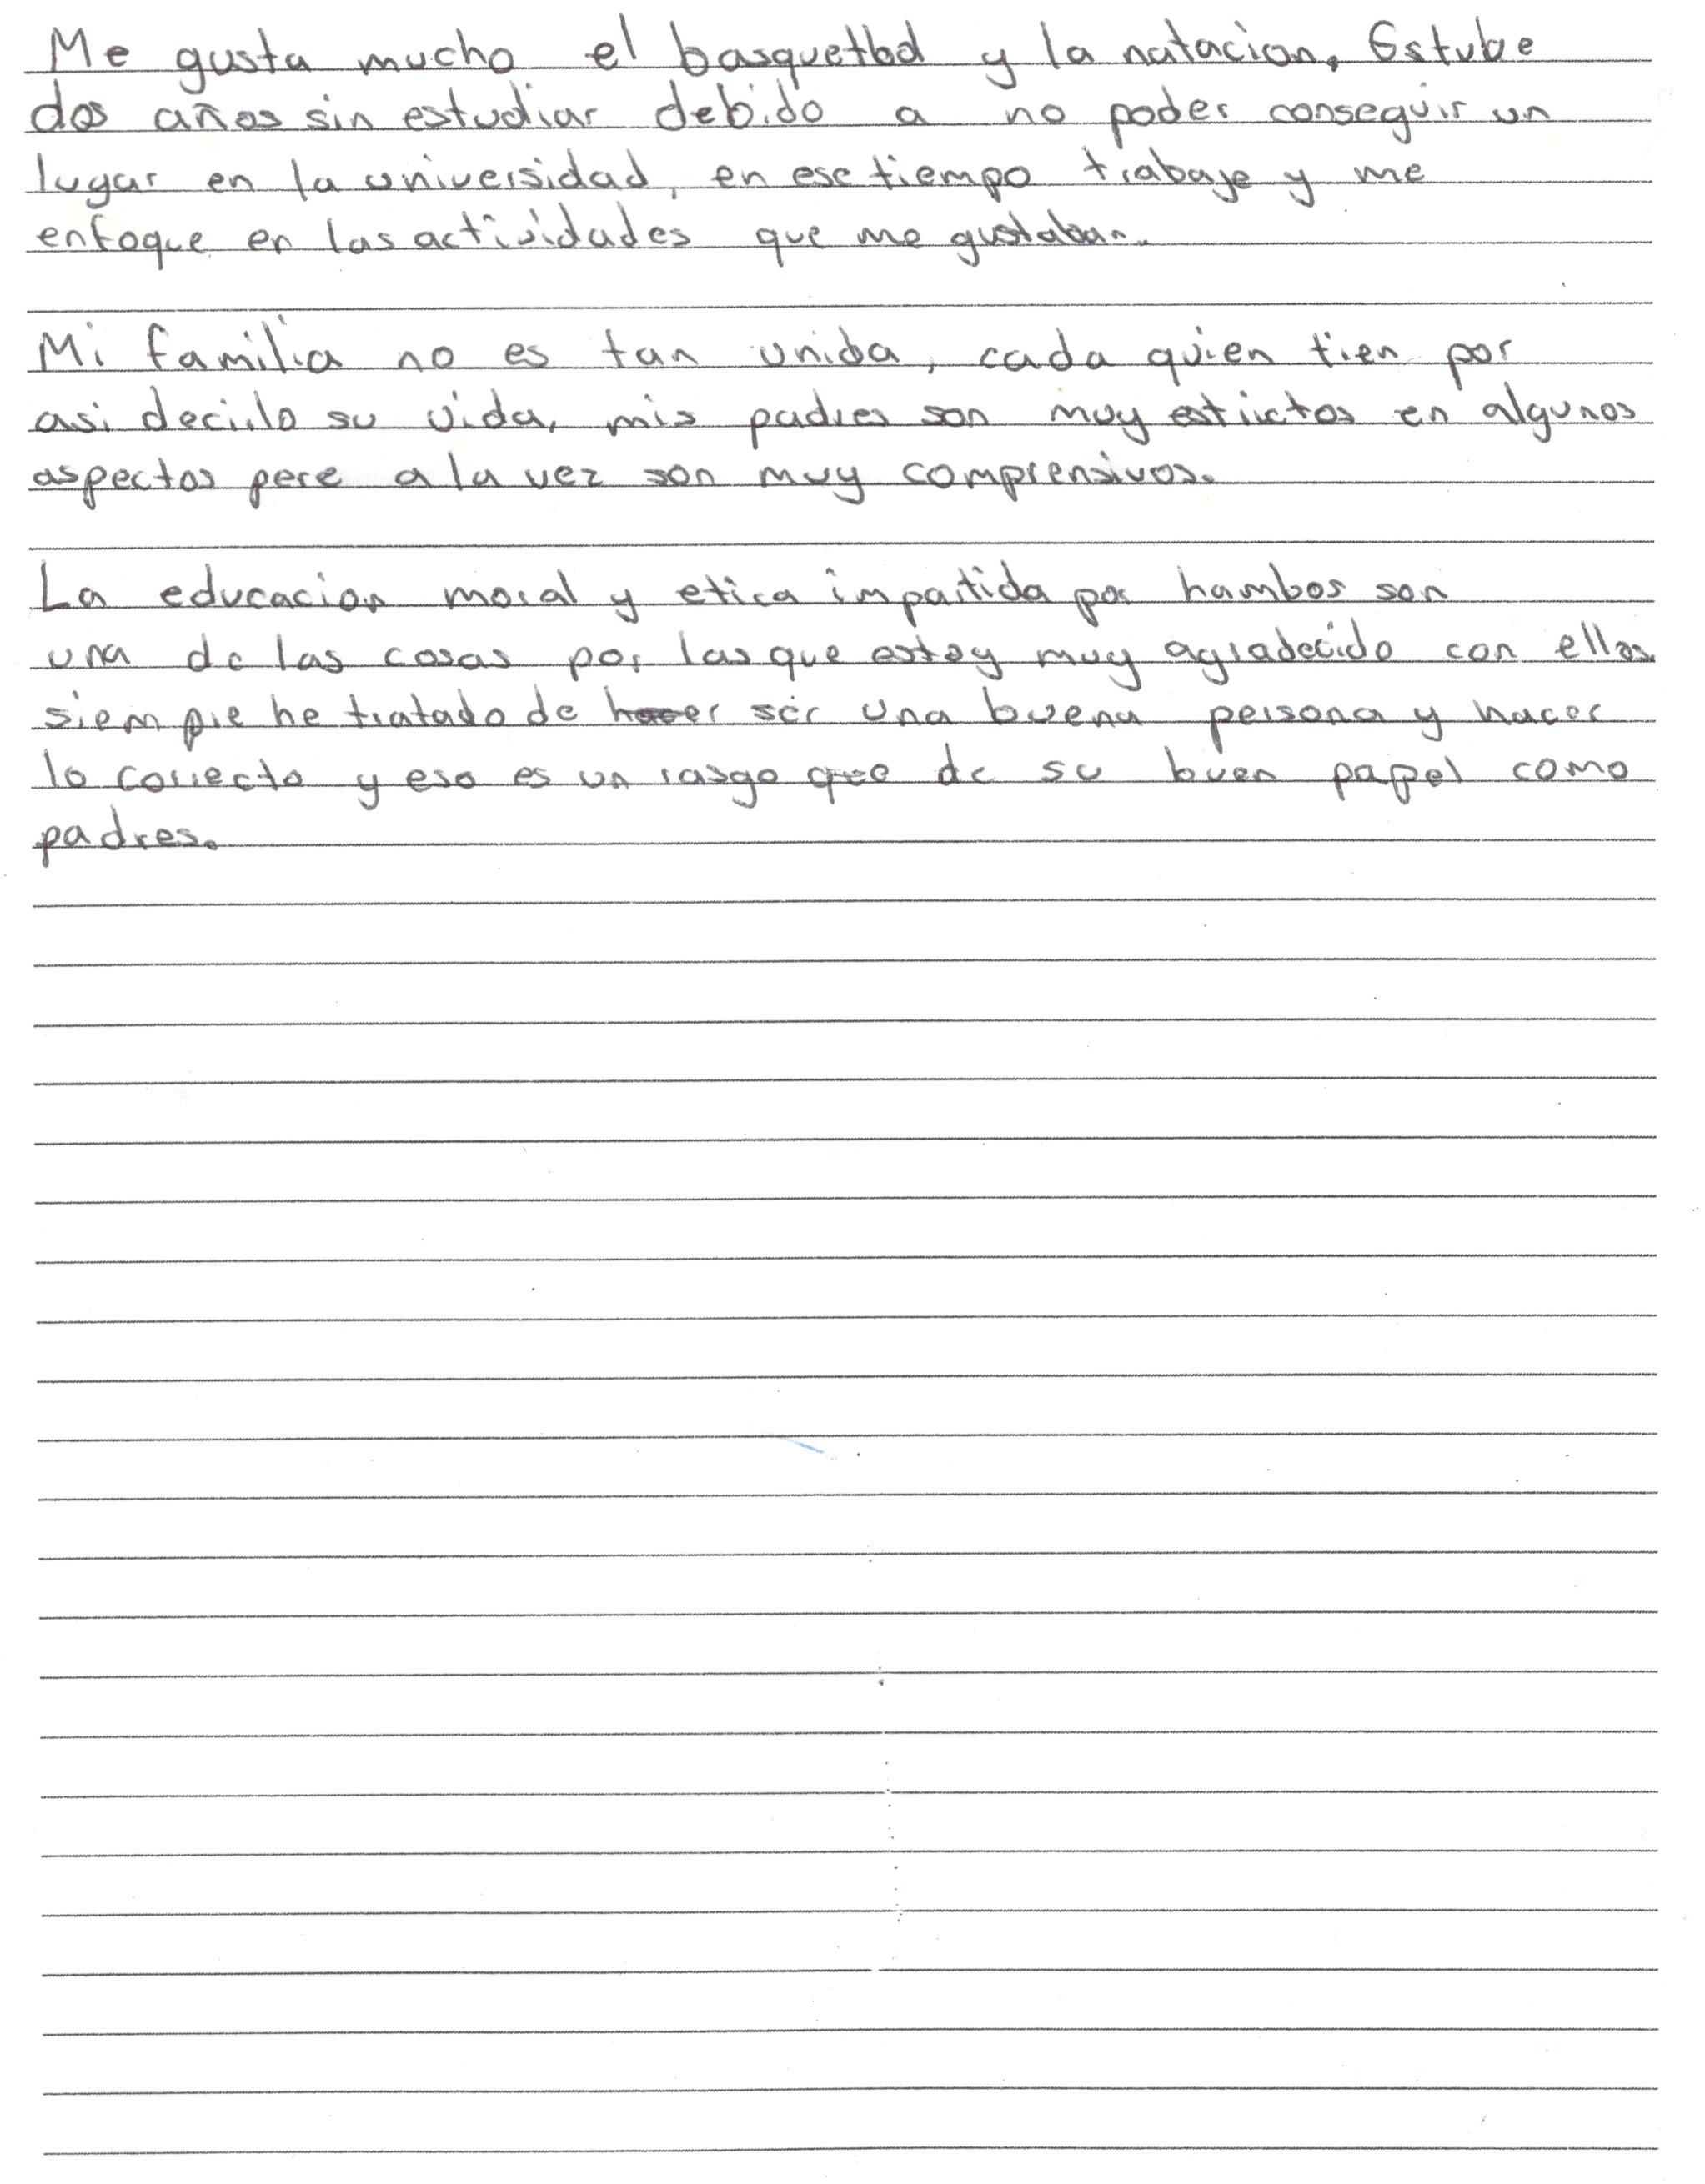 Me gusta mucho el basquetbol y la natacion. Estube
dos años sin estudiar debido a no poder conseguir un
lugar en la universidad, en ese tiempo trabaje y me
enfoque en las actividades que me gustaban.
Mi familia no es tan unida, cada quien tien por
asi decirlo su vida, mis padres son muy estrictos en algunos
aspectos pere a la vez son muy comprensivos.
La educacion moral y etica impartida por hambos son
una de las cosas por las que estoy muy agradecido con ellos.
siempre he tratado de hacer ser una buena persona y hacer
lo correcto y eso es un rasgo que de su buen papel como
padres.